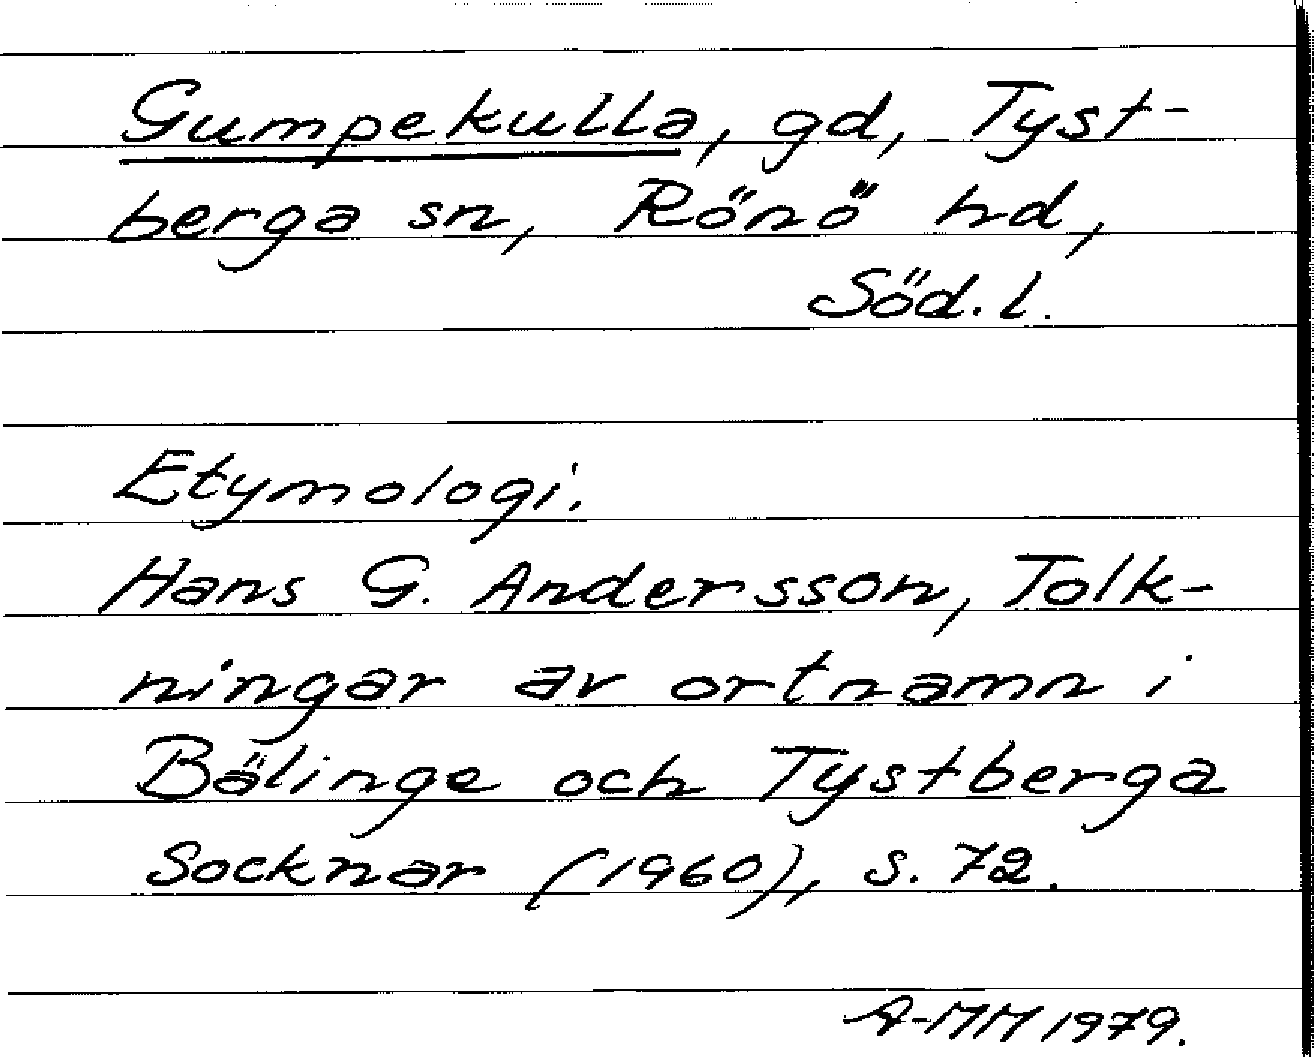 Gumpekulla, gd, Tyst-
berga sn, Rönö hd,
Söd. l.
Etymologi.
Hans G. Andersson, Tolk-
ningar av ortnamn i
Bälinge och Tystberga
Socknar (1960), s. 72.
A-MM 1979.